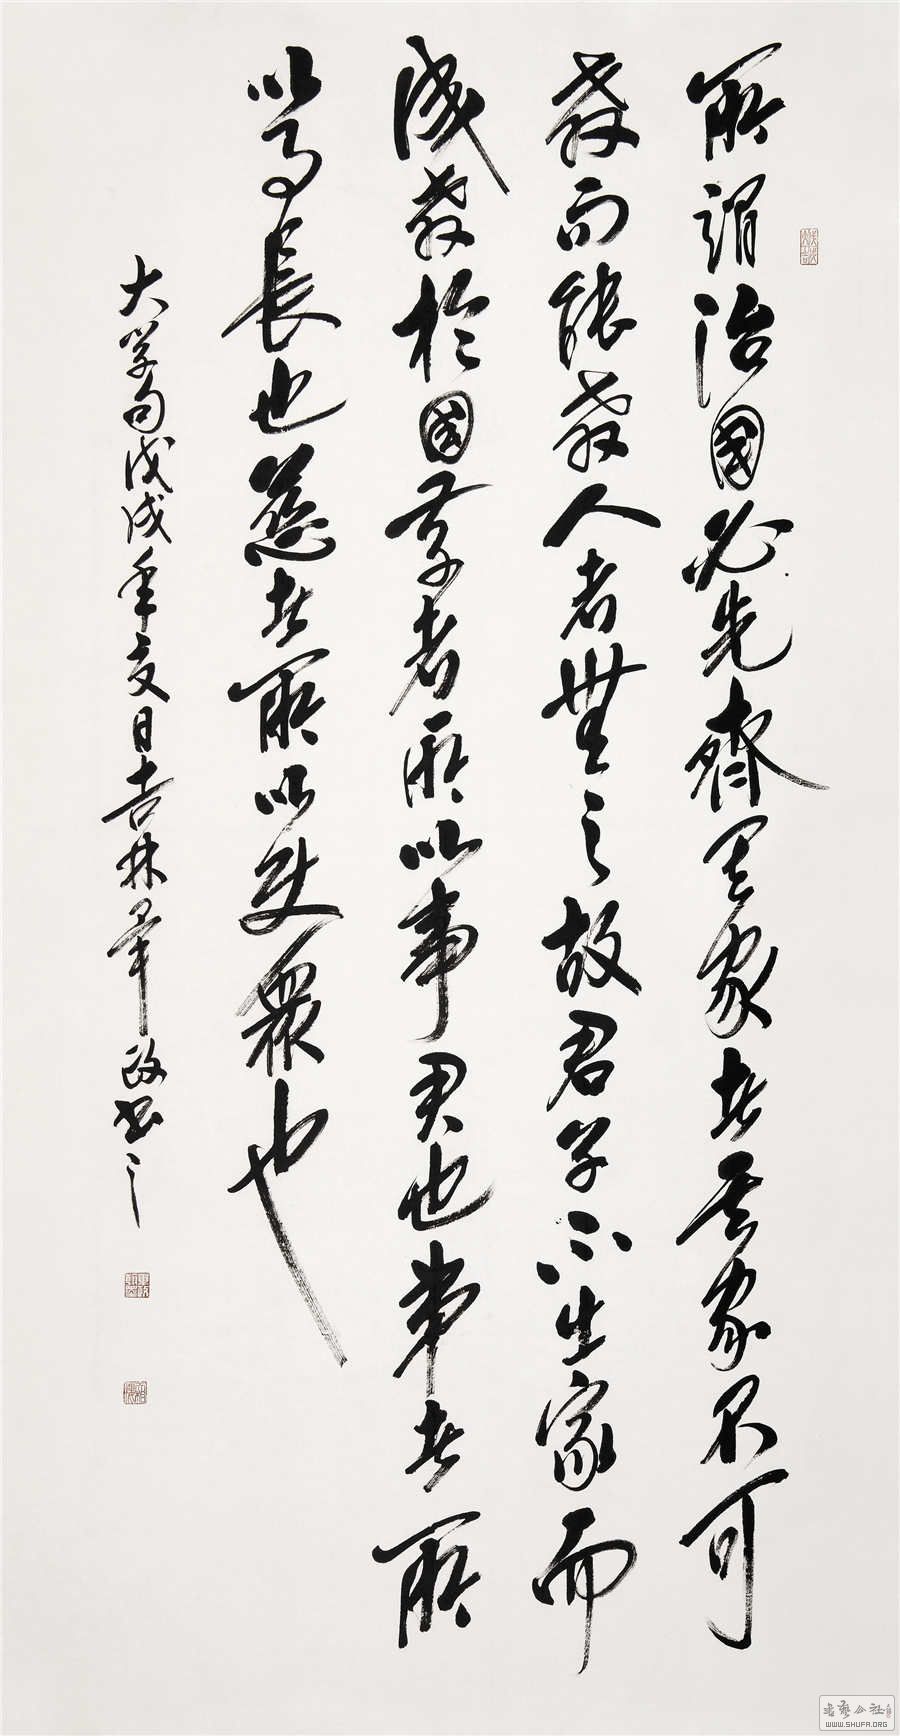 所謂治國必先齊其家者其家不可
教而能教人者無之故君子不出家而
成教於國孝者所以事君也弟者所
以事長也慈者所以使眾也
大学句戊戌年夏日吉林畢政書之
书艺公社
WWW.SHUFA.ORG